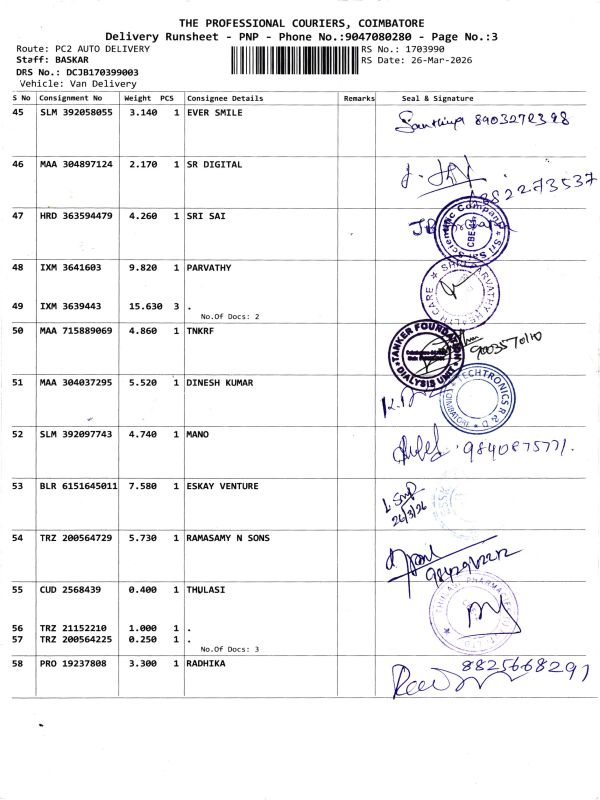 THE PROFESSIONAL COURIERS, COIMBATORE
Delivery Runsheet - PNP - Phone No.:9047080280 - Page No.:3
Route: PC2 AUTO DELIVERY
RS No.: 1703990
Staff: BASKAR
RS Date: 26-Mar-2026
DRS No.: DCJB170399003
Vehicle: Van Delivery
S No Consignment No Weight PCS Consignee Details Remarks Seal & Signature
45 SLM 392058055 3.140 1 EVER SMILE 8903272398
46 MAA 304897124 2.170 1 SR DIGITAL
47 HRD 363594479 4.260 1 SRI SAI
Sri Sai Scientific Company
CBE
48 IXM 3641603 9.820 1 PARVATHY
SHRI PARVATHY HEALTH CARE
49 IXM 3639443 15.630 3 .
No.Of Docs: 2
50 MAA 715889069 4.860 1 TNKRF
TANKER FOUNDATION
DIALYSIS UNIT
51 MAA 304037295 5.520 1 DINESH KUMAR
TECHTRONICS R & D
52 SLM 392097743 4.740 1 MANO 9840875771.
53 BLR 6151645011 7.580 1 ESKAY VENTURE
26/3/26
54 TRZ 200564729 5.730 1 RAMASAMY N SONS
55 CUD 2568439 0.400 1 THULASI
56 TRZ 21152210 1.000 1 .
57 TRZ 200564225 0.250 1 .
No.Of Docs: 3
58 PRO 19237808 3.300 1 RADHIKA 8825668291